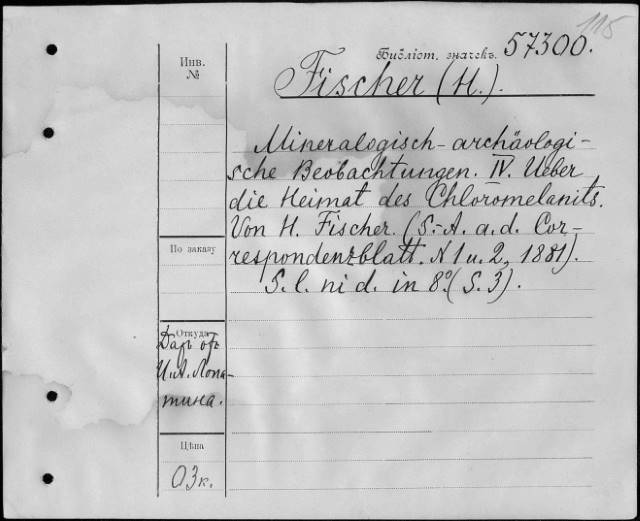 115
Библіот. значекъ. 57300.
Инв.
№
Fischer (H.).
Mineralogisch-archäologi-
sche Beobachtungen. IV. Ueber
die Heimat des Chloromelanits.
Von H. Fischer. (S.-A. a. d. Cor-
respondenzblatt. N 1 u. 2, 1881).
S. l. ni d. in 8º. (S. 3).
По заказу
Откуда
Даръ отъ
И. А. Лопа-
тина.
Цѣна
03 к.